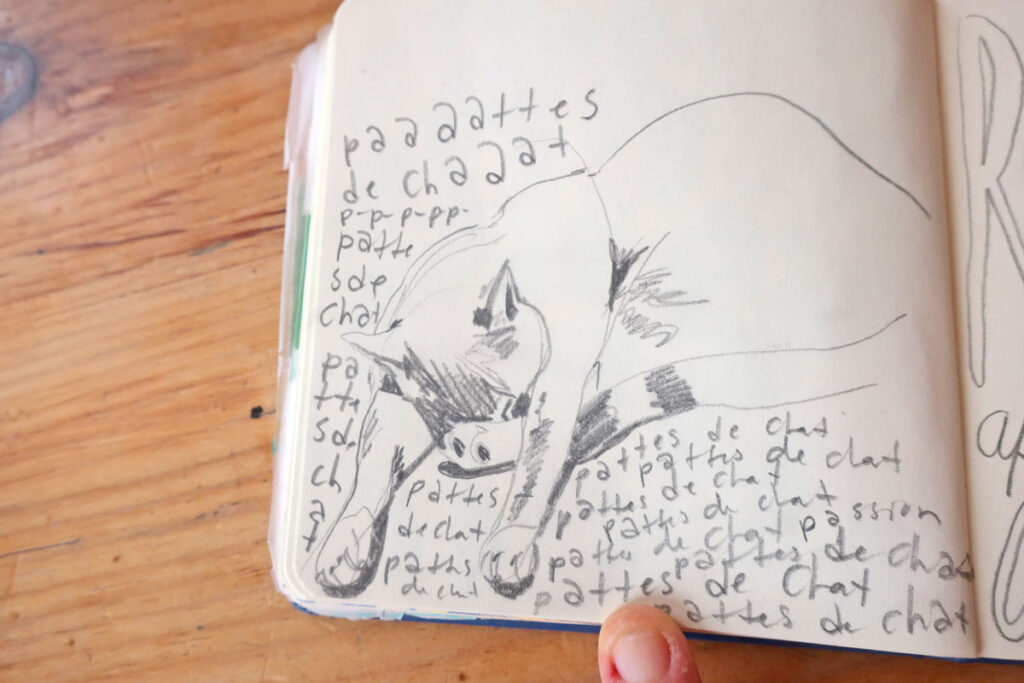 paaaattes
de chaaat
p-p-p-pp-
patte
sde
chat
pa
tte
sde
ch
a
t
pattes
de chat
pattes
de chat
pattes de chat
pattes de chat
pattes de chat
pattes de chat
pattes de chat passion
pattes de chat
pattes de chat
pattes de chat
R
ap